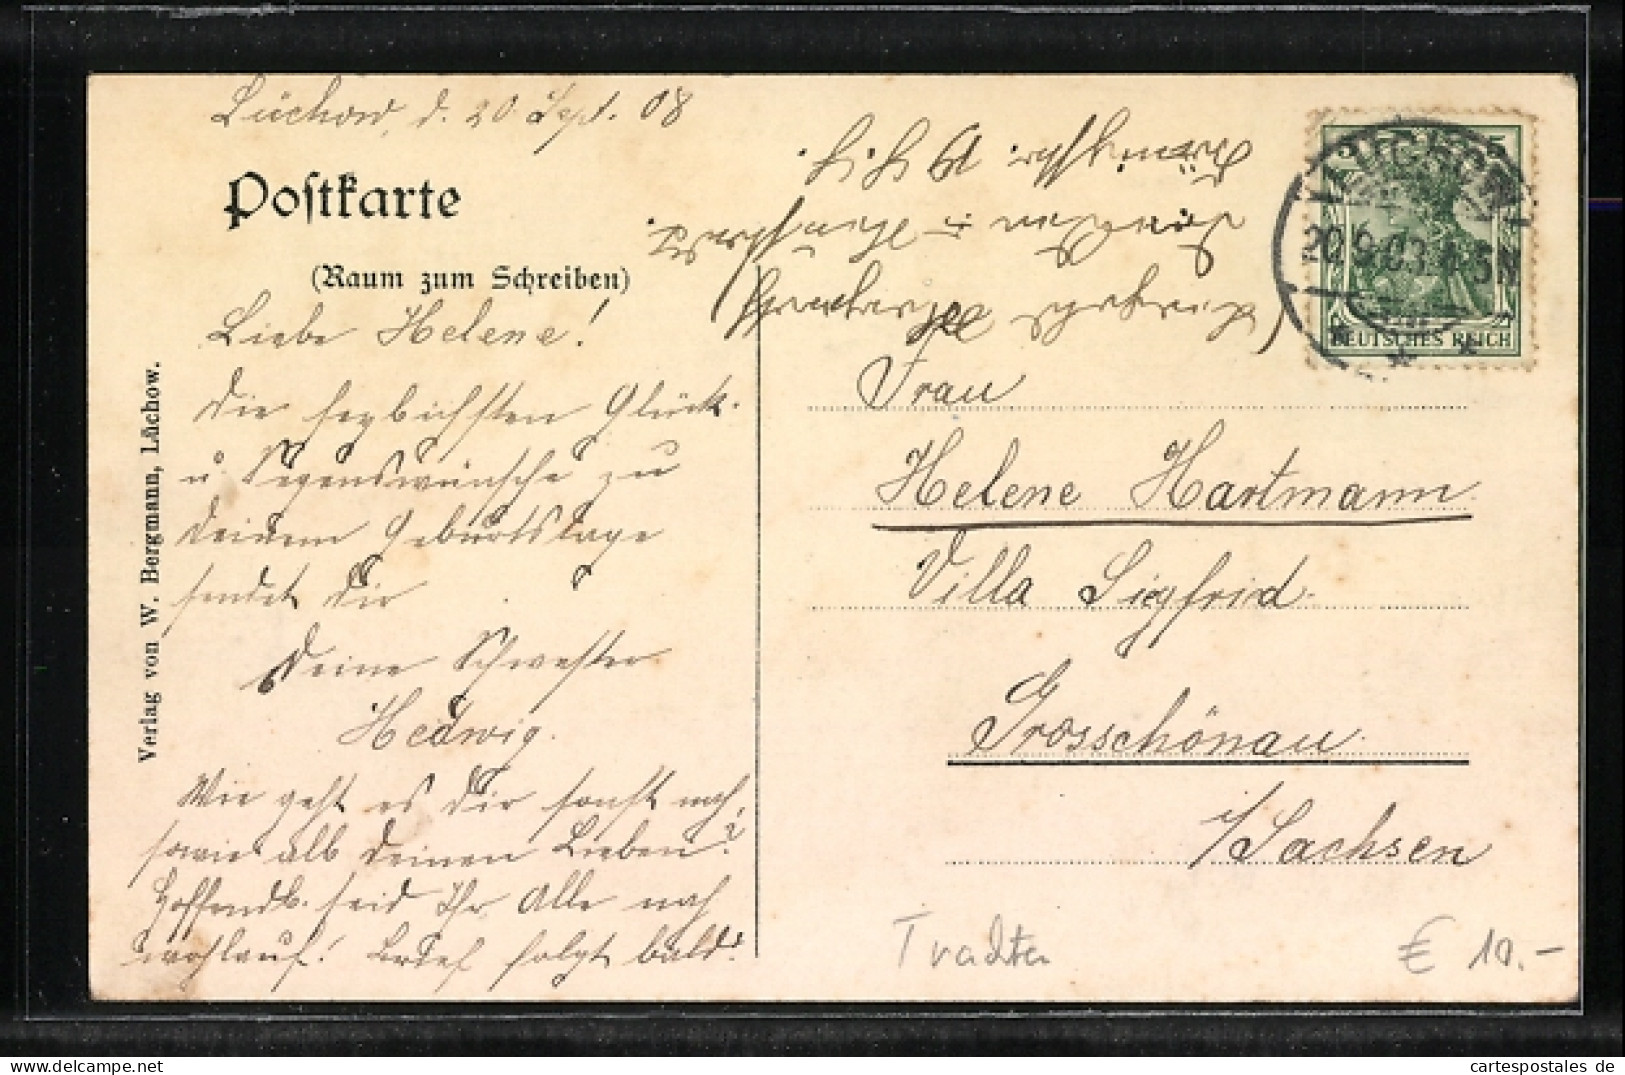 Lüchow, d. 20 Sept. 08
Postkarte
(Raum zum Schreiben)
Liebe Helene!
Die herzlichsten Glück-
u. Segenswünsche zu
Deinem Geburtstage
sendet Dir
Deine Schwester
Hedwig.
Wie geht es Dir sonst noch,
sowie all Deinen Lieben?
Hoffendl. seid Ihr Alle noch
wohlauf! Brief folgt bald!
Verlag von W. Bergmann, Lüchow.
5 5
LÜCHOW
DEUTSCHES REICH
Frau
Helene Hartmann
Villa Sigfrid
Grosschönau
i/Sachsen
Trachten
€ 10.-
cartespostales de